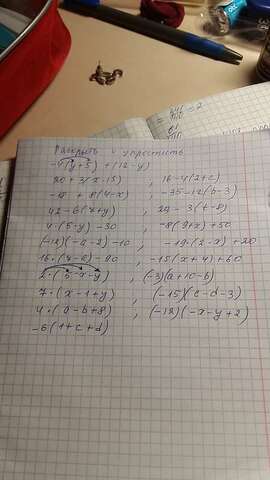 Раскрыть и упростить
-4(y+5) + (12-y)
20 + 3(x-15) , 16-4(2+c)
+ 8(4-x) , -35-12(b-3)
42-6(7+y) , 29-3(t-8)
4·(5-y)-30 , -8(9+x)+50
(-12)(-a-2)-10 , -19·(2-x)+20
16·(4-6)-90 , -15(x+4)+60
2·(5-x-y) , (-3)(a+10-b)
7·(x-1+y) , (-15)(c-d-3)
4·(a-b+8) , (-12)(-x-y+2)
-6(1+c+d)